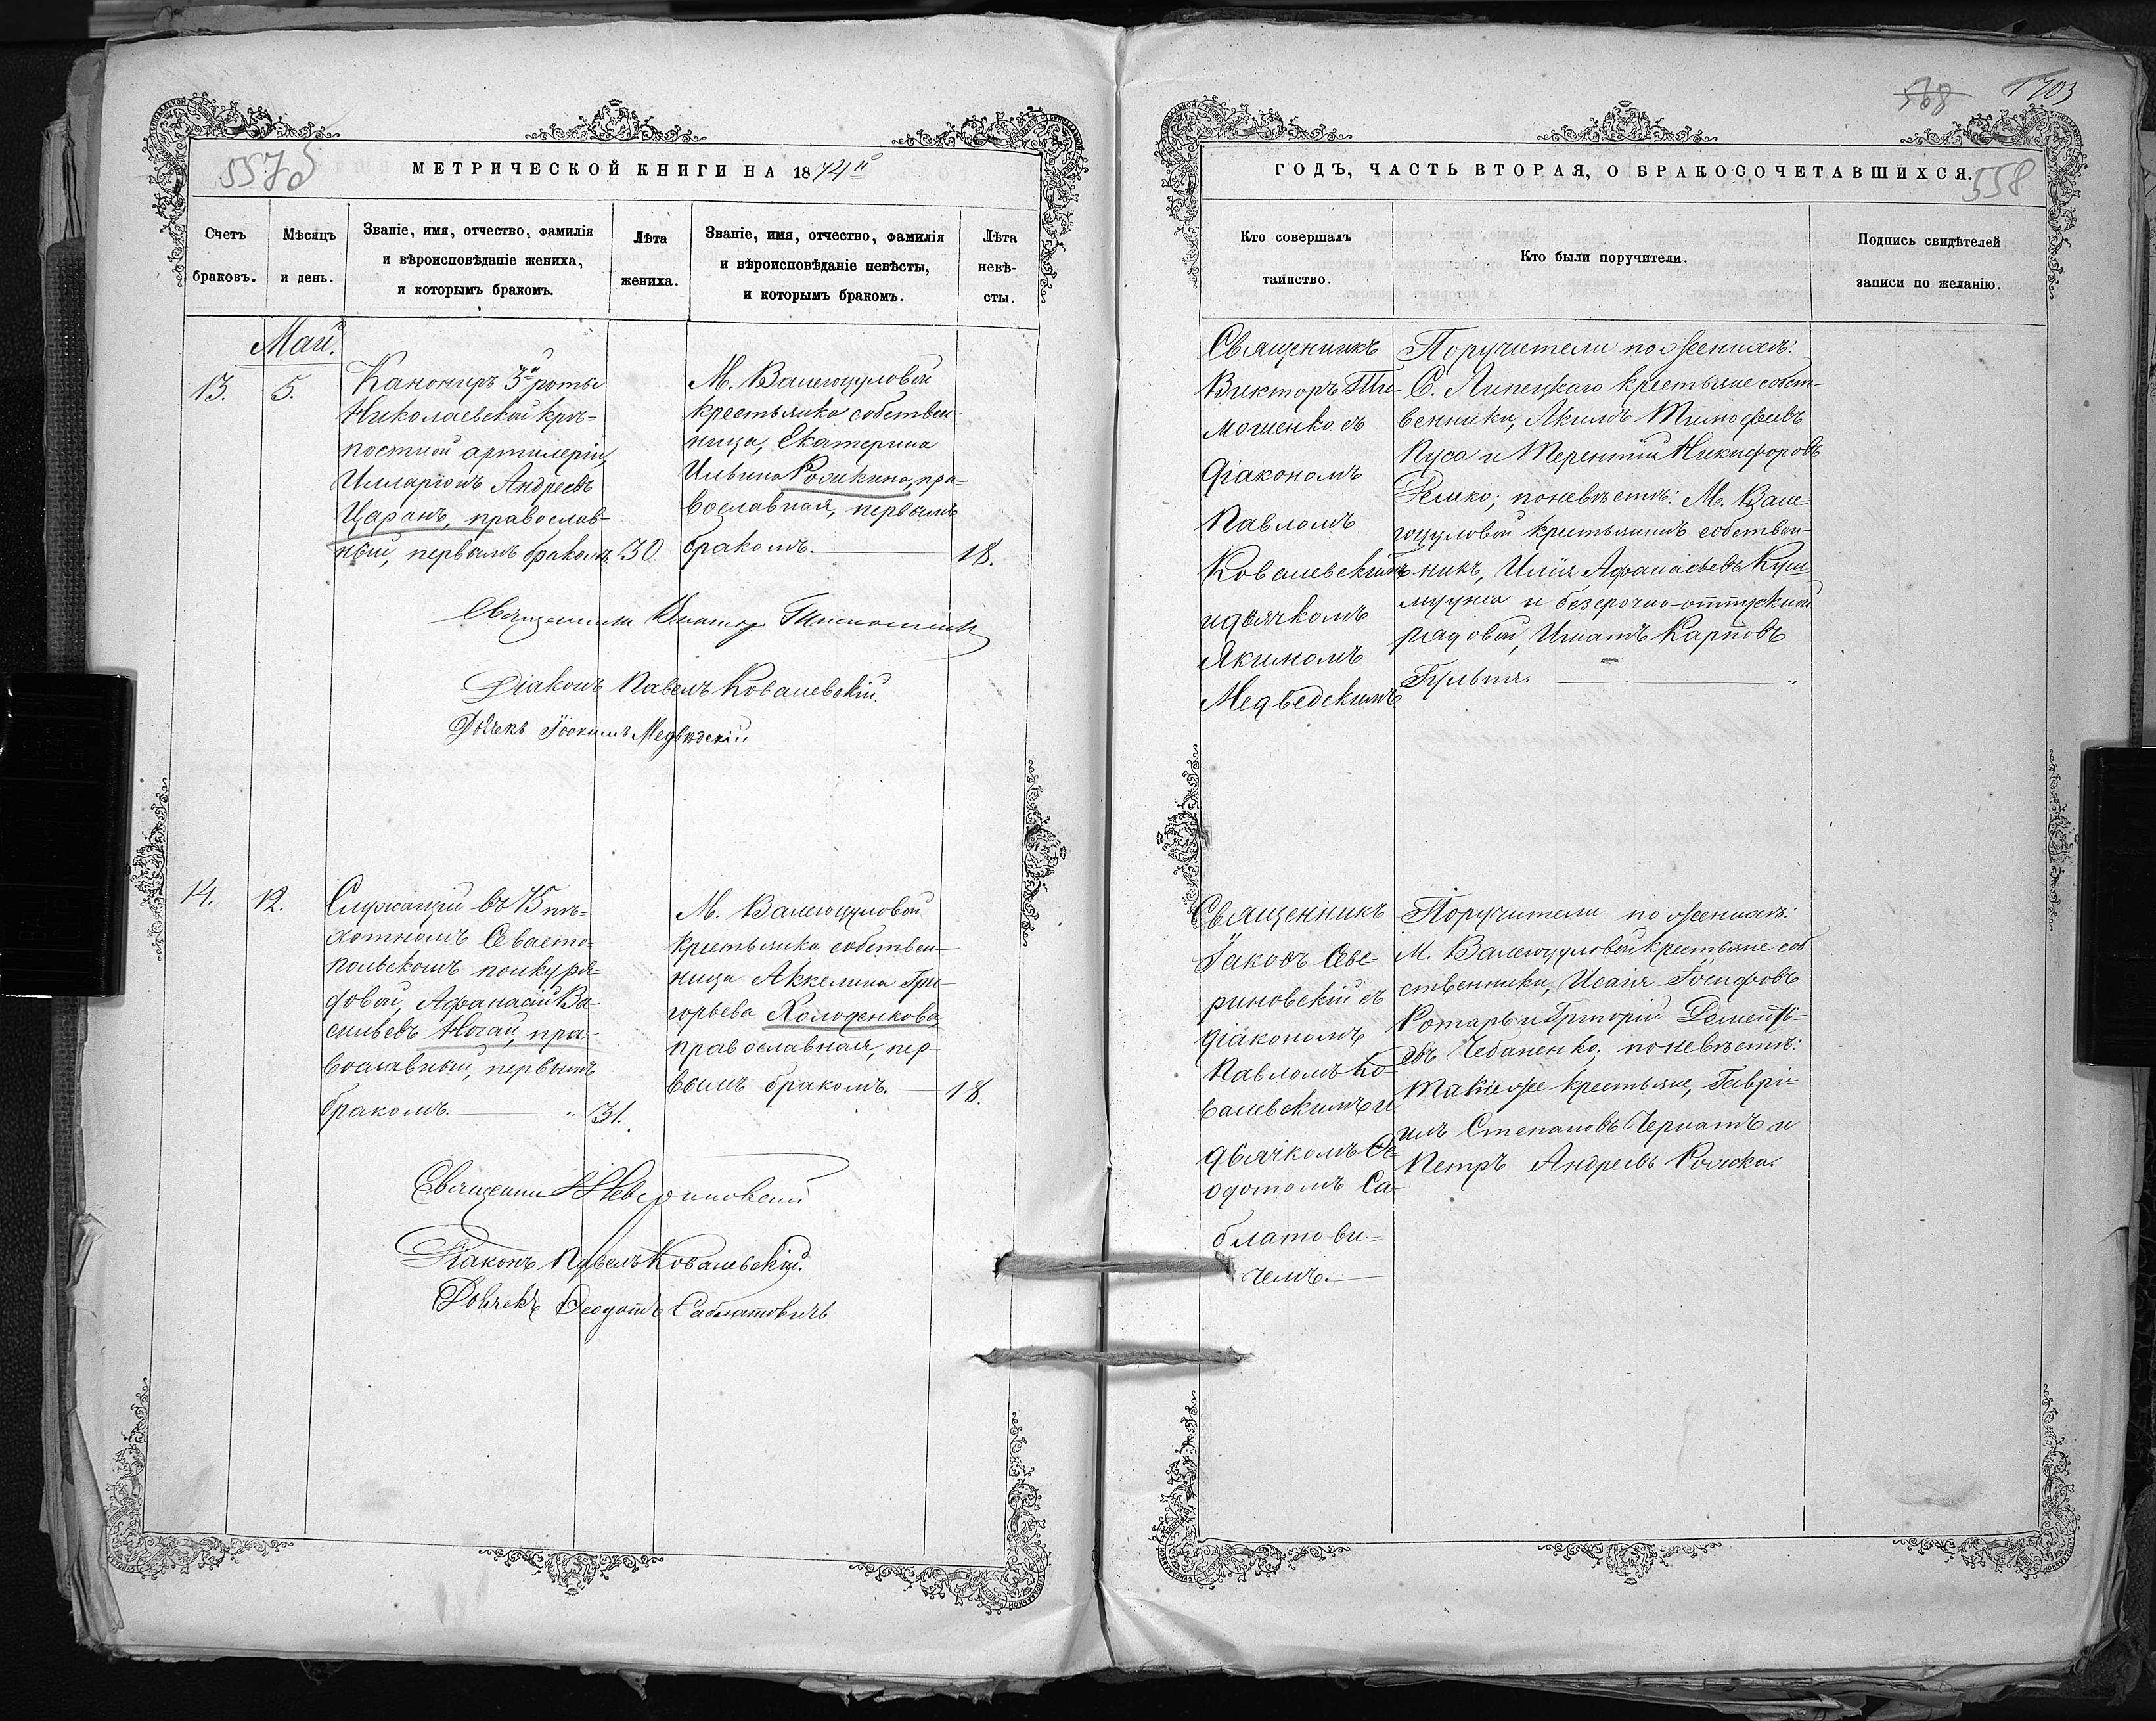 МЕТРИЧЕСКОЙ КНИГИ НА 1874й
Счетъ браковъ.
Мѣсяцъ и день.
Званіе, имя, отчество, фамилія
и вѣроисповѣданіе жениха,
и которымъ бракомъ.
Лѣта жениха.
Званіе, имя, отчество, фамилія
и вѣроисповѣданіе невѣсты,
и которымъ бракомъ.
Лѣта невѣ-
сты.
Май.
13.
5.
Канониръ 3й роты
Николаевской крѣ-
постной артилеріи,
Илларіонъ Андреевъ
Царанъ, православ-
ный, первымъ бракомъ.
30.
М. Валегоцуловой
крестьянка собствен-
ница, Екатерина
Ильина пра-
вославная, первымъ
бракомъ.
18.
Священникъ Викторъ Тимошенко
Діаконъ Павелъ Ковалевскій.
Дьячекъ Іоакимъ Медвѣдскій
14.
12.
Служащій въ 75 пѣ-
хотномъ Севасто-
польскомъ полку ря-
довой, Афанасій Ва-
сильевъ Ногай, пра-
вославный, первымъ
бракомъ.
31.
М. Валегоцуловой
крестьянка собствен-
ница Аккелина Гри-
горьева Холоденкова,
православная, пер-
вымъ бракомъ.
18.
Священникъ Севериновскій
Діаконъ Павелъ Ковалевскій.
Дьячекъ Ѳеодотъ Саблатовичъ
568
1703
ГОДЪ, ЧАСТЬ ВТОРАЯ, О БРАКОСОЧЕТАВШИХСЯ.
558
Кто совершалъ
таинство.
Кто были поручители.
Подпись свидѣтелей
записи по желанію.
Священникъ
Викторъ Ти-
мошенко съ
діакономъ
Павломъ
Ковалевскимъ
и дьячкомъ
Якимомъ
Медвѣдскимъ
Поручители по женихѣ:
С. Липецкаго крестьяне собст-
венники, Акимъ Тимофеевъ
Пуса и Терентій Никифоровъ
по невѣстѣ: М. Вале-
гоцуловой крестьянинъ собствен-
никъ, Илія Афанасьевъ
и безсрочно-отпускной
рядовой, Игнатъ Карповъ
Гульпа.
Священникъ
Іаковъ Севе-
риновскій съ
діакономъ
Павломъ Ко-
валевскимъ и
дьячкомъ Ѳе-
одотомъ Са-
блатови-
чемъ.
Поручители по женихѣ:
М. Валегоцуловой крестьяне соб
ственники, Исаія Іосифовъ
Ротарь и Григорій Демент-
евъ Чебаненко; по невѣстѣ:
такіе же крестьяне, Гаврі-
илъ Степановъ Чернатъ и
Петръ Андреевъ